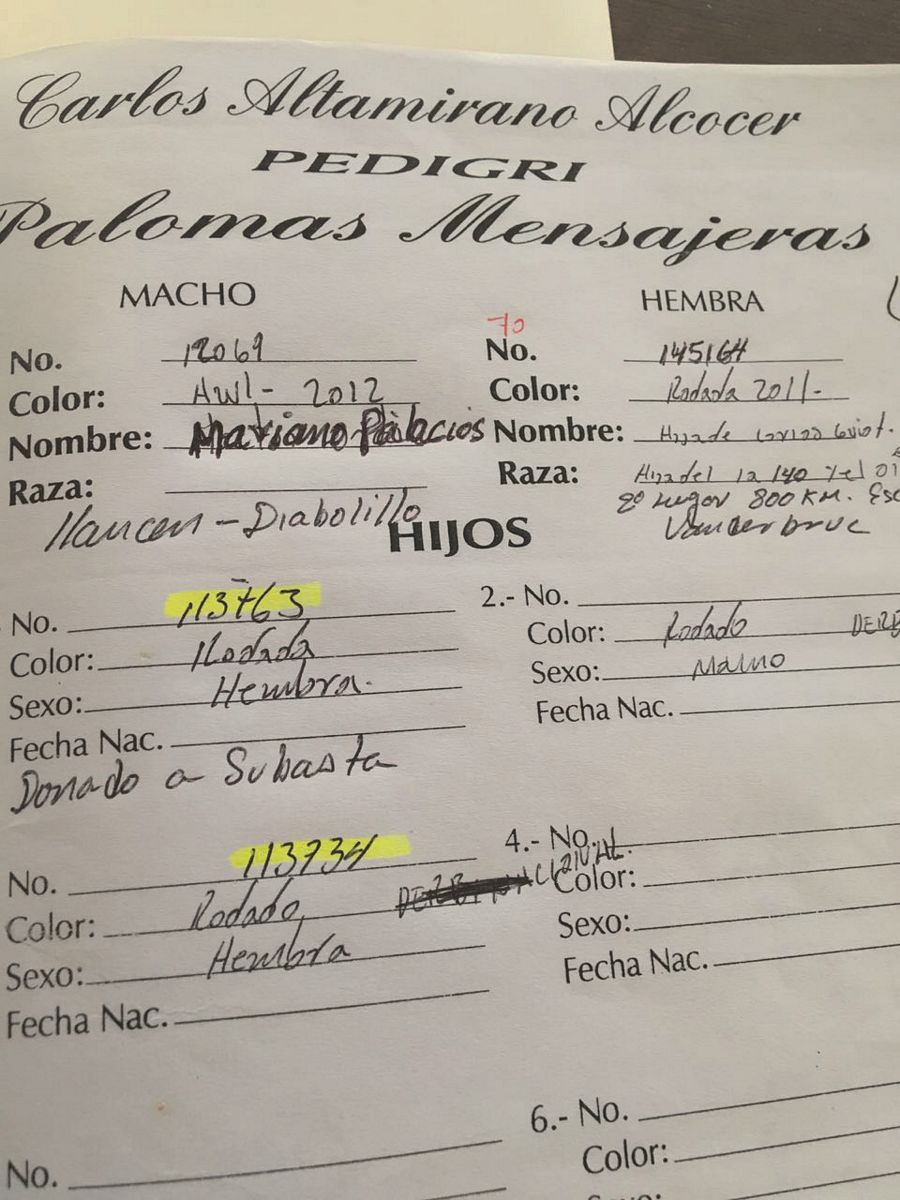 Carlos Altamirano Alcocer
PEDIGRI
Palomas Mensajeras
MACHO
No. 12069
Color: AWL- 2012
Nombre: Mariano Palacios
Raza:
Hancen - Diabolillo
70
HEMBRA
No. 145164
Color: Rodada 2011-
Nombre: Hija de
Raza: Hija del 12 140 y el 01
2º Lugar 800 KM. Esc
Vanderbruc
HIJOS
No. 113763
Color: Rodada
Sexo: Hembra.
Fecha Nac.
Donado a Subasta
2.- No.
Color: Rodado DERB
Sexo: Macho
Fecha Nac.
No. 113734
Color: Rodado
Sexo: Hembra
Fecha Nac.
4.- No.
Color:
Sexo:
Fecha Nac.
No.
6.- No.
Color: